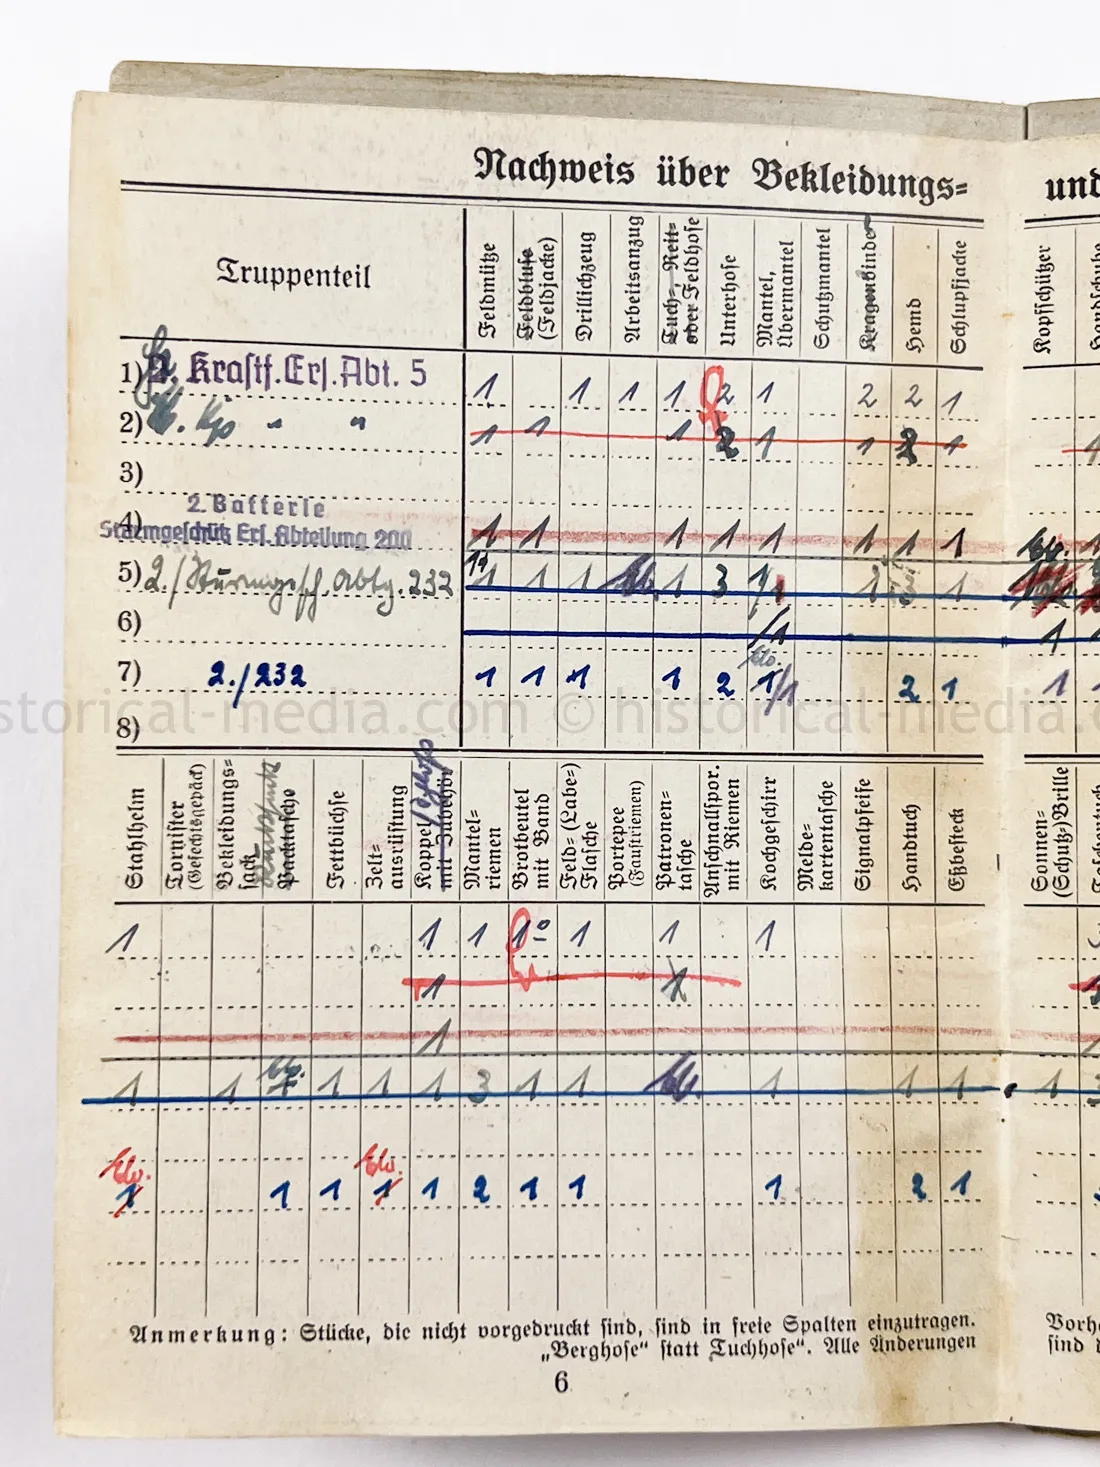 Nachweis über Bekleidungs= und
Truppenteil
Feldmütze
Feldbluse
(Feldjacke)
Drillichzeug
Arbeitsanzug
Tuch=, Reit=
oder Feldhose
Unterhose
Mantel,
Übermantel
Schutzmantel
Kragenbinde
Hemd
Schlupfjacke
Kopfschützer
Handschuhe
1) Kraftf. Ers. Abt. 5 1 1 1 1 2 1 2 2 1
2) " " 1 1 1 2 1 1 2 1 1
3)
2. Batterie
4) Sturmgeschütz Ers. Abteilung 200 1 1 1 1 1 1 1 1 1
5) 2./Sturmgesch. Abtg. 232 1 1 1 1 3 1 1
6) 1 1 1
7) 2./232 1 1 1 1 2 1/1 2 1 1 1
8)
historical-media.com © historical-media.com
Stahlhelm
Tornister
(Gefechtsgepäck)
Bekleidungs-
sack
Packtasche
Fettbüchse
Zelt-
ausrüstung
Koppel
mit Zubehör
Mantel-
riemen
Brotbeutel
mit Band
Feld= (Labe=)
Flasche
Portepee
(Faustriemen)
Patronen-
tasche
Anschnallspor.
mit Riemen
Kochgeschirr
Melde-
kartentasche
Signalpfeise
Handtuch
Eßbesteck
Sonnen-
(Schutz=) Brille
1 1 1 1 1 1 1
1 1
1
1 1 1 1 1 1 3 1 1 1 1 1 1
1 1 1 1 1 2 1 1 1 2 1
Anmerkung: Stücke, die nicht vorgedruckt sind, sind in freie Spalten einzutragen.
„Berghose“ statt Tuchhose“. Alle Änderungen
sind
6